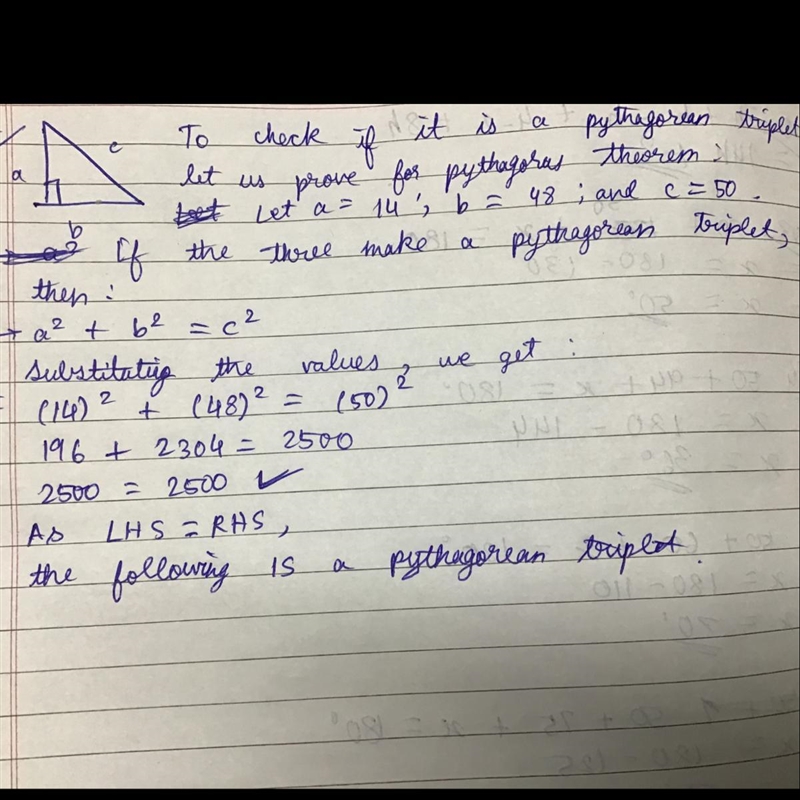 a
c
b
To check if it is a pythagorean triplet
let us prove for pythagoras theorem :
Let a = 14 ; b = 48 ; and c = 50 .
If the three make a pythagorean triplet,
then :
→ a² + b² = c²
Substituting the values, we get :
(14)² + (48)² = (50)²
196 + 2304 = 2500
2500 = 2500 ✓
As LHS = RHS,
the following is a pythagorean triplet.